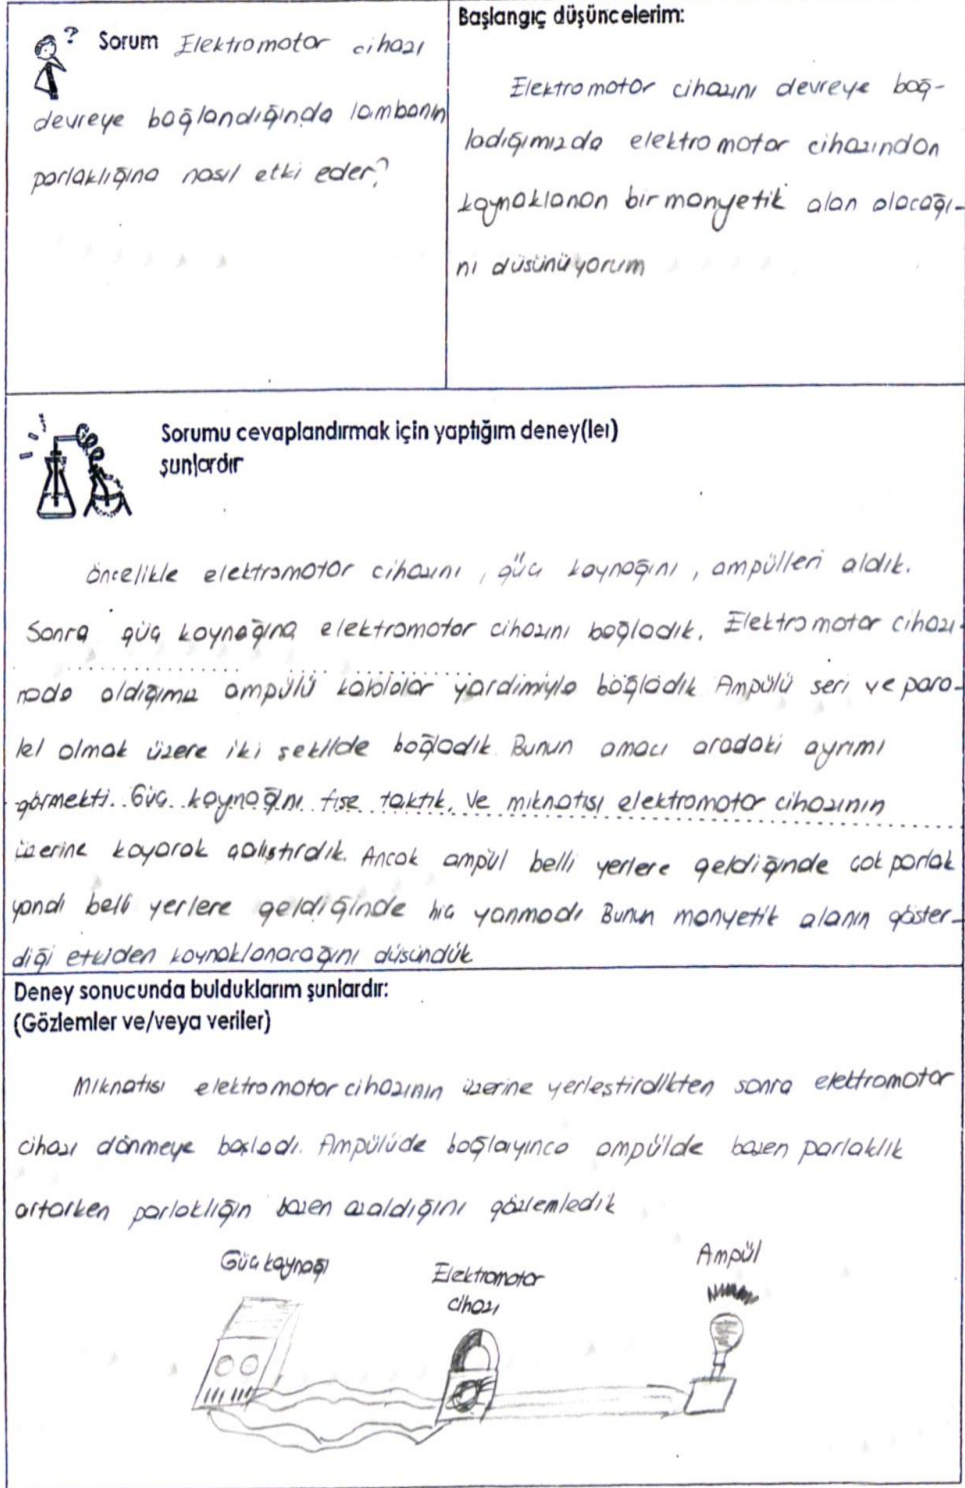 ? Sorum Elektromotor cihazı
devreye bağlandığında lambanın
parlaklığına nasıl etki eder?
Başlangıç düşüncelerim:
Elektromotor cihazını devreye bağ-
ladığımızda elektromotor cihazından
kaynaklanan bir manyetik alan olacağı-
nı düşünüyorum
Sorumu cevaplandırmak için yaptığım deney(ler)
şunlardır
Öncelikle elektromotor cihazını, güç kaynağını, ampülleri aldık.
Sonra güç kaynağına elektromotor cihazını bağladık. Elektromotor cihazı-
nada aldığımız ampülü kablolar yardimiyla bağladık Ampülü seri ve para-
lel olmak üzere iki şekilde bağladık. Bunun amacı aradaki ayrımı
görmekti. Güç kaynağını fişe taktık. Ve mıknatısı elektromotor cihazının
üzerine koyarak çalıştırdık. Ancak ampül belli yerlere geldiğinde çok parlak
yandı belli yerlere geldiğinde hiç yanmadı Bunun manyetik alanın göster-
diği etkiden kaynaklanacağını düşündük
Deney sonucunda bulduklarım şunlardır:
(Gözlemler ve/veya veriler)
Mıknatısı elektromotor cihazının üzerine yerleştirdikten sonra elektromotor
cihazı dönmeye başladı. Ampülüde bağlayınca ampülde bazen parlaklık
artarken parlaklığın bazen azaldığını gözlemledik
Güç kaynağı
Elektromotor
cihazı
Ampül